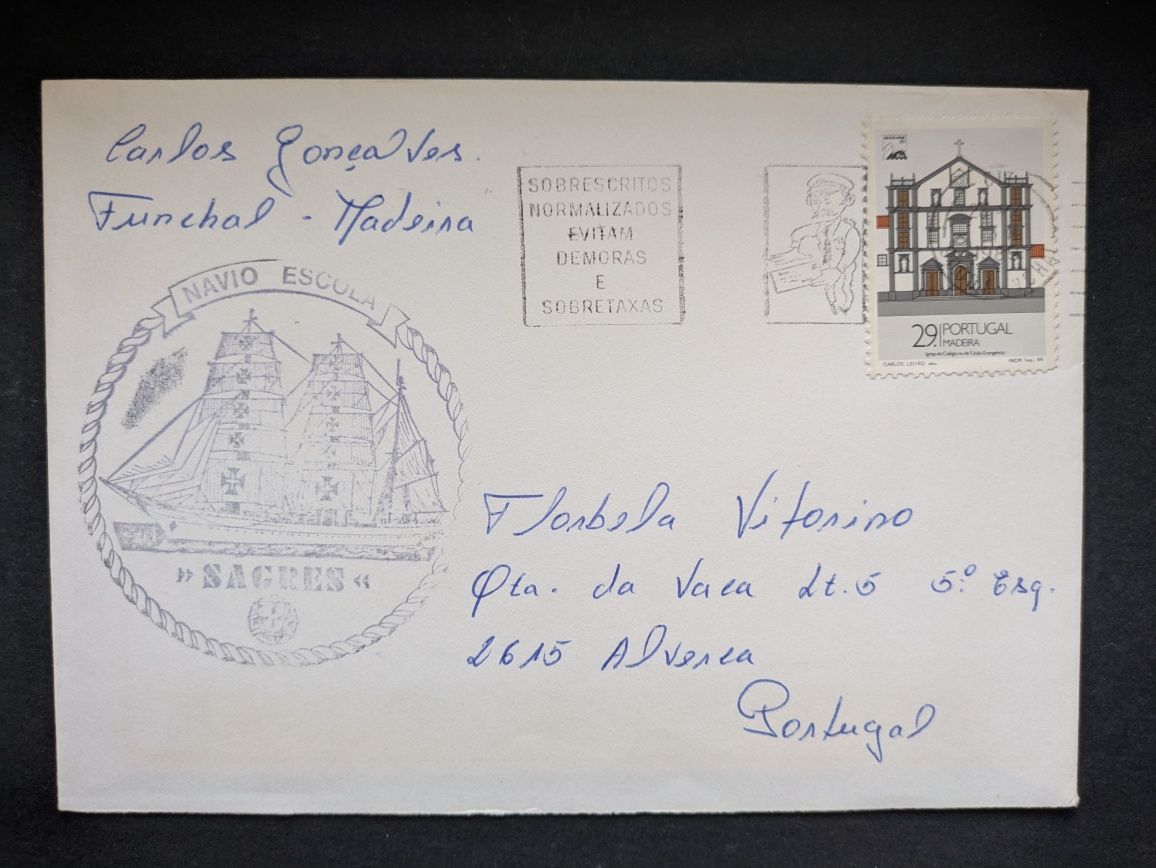 Carlos Gonçalves.
Funchal - Madeira
SOBRESCRITOS
NORMALIZADOS
EVITAM
DEMORAS
E
SOBRETAXAS
29. PORTUGAL
MADEIRA
Igreja do Colégio ou de S. João Evangelista
CARLOS LEITÃO des. INCM Imp. 89
NAVIO ESCOLA
» SAGRES «
Florbela Vitorino
Qta. da Vaca Lt. 5 5.º Esq.
2615 Alverca
Portugal